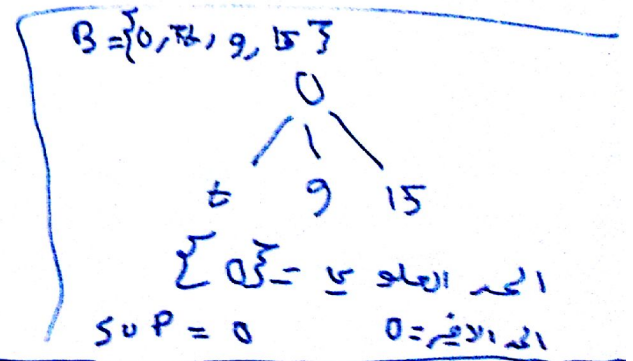 B={0, 7, 9, 15}
0
7 9 15
الحد العلوي = {0}
sup = 0 الحد الاخير = 0